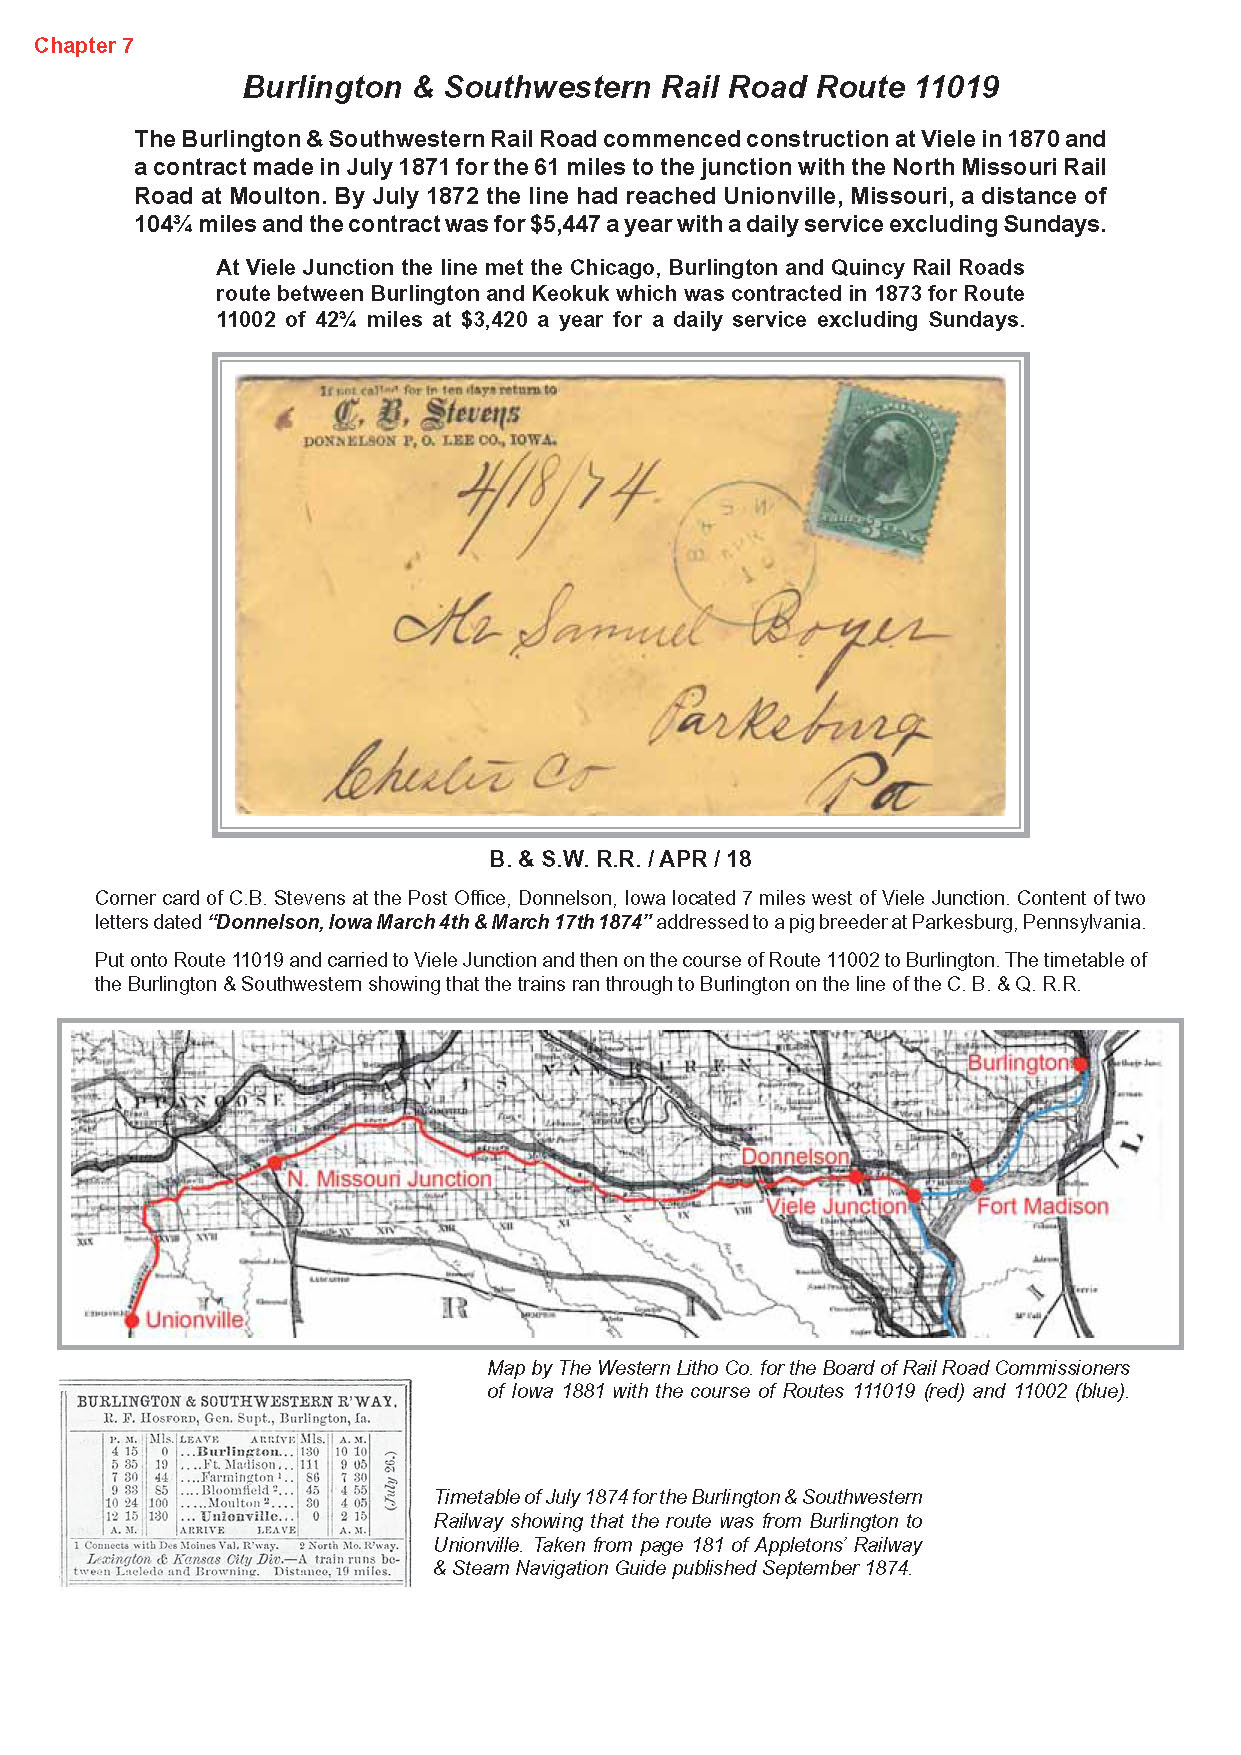 Chapter 7
Burlington & Southwestern Rail Road Route 11019
The Burlington & Southwestern Rail Road commenced construction at Viele in 1870 and
a contract made in July 1871 for the 61 miles to the junction with the North Missouri Rail
Road at Moulton. By July 1872 the line had reached Unionville, Missouri, a distance of
104¾ miles and the contract was for $5,447 a year with a daily service excluding Sundays.
At Viele Junction the line met the Chicago, Burlington and Quincy Rail Roads
route between Burlington and Keokuk which was contracted in 1873 for Route
11002 of 42¾ miles at $3,420 a year for a daily service excluding Sundays.
If not called for in ten days return to
C. B. Stevens
DONNELSON P. O. LEE CO., IOWA.
4/18/74.
B & S W
APR
Mr Samuel Boyer
Parkesburg
Chester Co
Pa
B. & S.W. R.R. / APR / 18
Corner card of C.B. Stevens at the Post Office, Donnelson, Iowa located 7 miles west of Viele Junction. Content of two
letters dated “Donnelson, Iowa March 4th & March 17th 1874” addressed to a pig breeder at Parkesburg, Pennsylvania.
Put onto Route 11019 and carried to Viele Junction and then on the course of Route 11002 to Burlington. The timetable of
the Burlington & Southwestern showing that the trains ran through to Burlington on the line of the C. B. & Q. R.R.
Burlington
APPANOOSE
DAVIS
VAN BUREN
Donnelson
N. Missouri Junction
Viele Junction
Fort Madison
XIX
XVIII
XVII
XV
XIV
XIII
XII
XI
X
IX
VIII
LANCASTER
MEMPHIS
Unionville
R
I
I
L
BURLINGTON & SOUTHWESTERN R'WAY.
R. F. HOSFORD, Gen. Supt., Burlington, Ia.
P. M. Mls. LEAVE ARRIVE Mls. A. M.
4 15 0 ...Burlington... 130 10 10
5 35 19 ....Ft. Madison... 111 9 05
7 30 44 ....Farmington 1.. 86 7 30
9 33 85 ....Bloomfield 2... 45 4 55
10 24 100 .....Moulton 2.... 30 4 05
12 15 130 ... Unionville... 0 2 15
A. M. ARRIVE LEAVE A. M.
(July 26.)
1 Connects with Des Moines Val. R'way. 2 North Mo. R'way.
Lexington & Kansas City Div.—A train runs be-
tween Laclede and Browning. Distance, 19 miles.
Map by The Western Litho Co. for the Board of Rail Road Commissioners
of Iowa 1881 with the course of Routes 111019 (red) and 11002 (blue).
Timetable of July 1874 for the Burlington & Southwestern
Railway showing that the route was from Burlington to
Unionville. Taken from page 181 of Appletons’ Railway
& Steam Navigation Guide published September 1874.